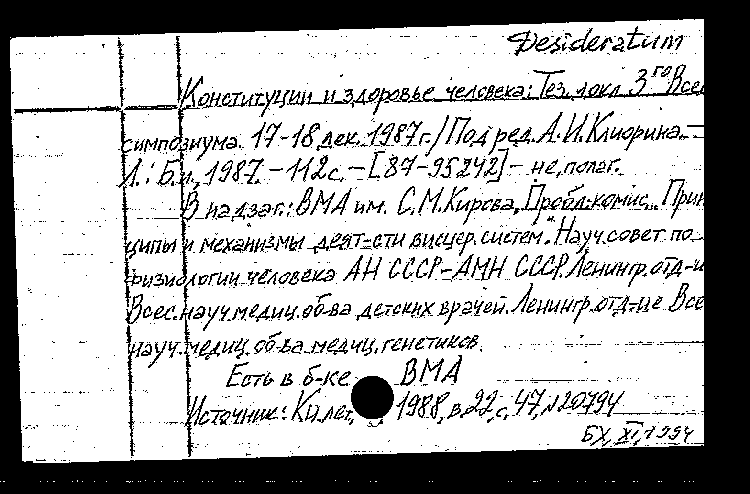 Desideratum
Конституции и здоровье человека: Тез. докл. 3го Всес
симпозиума. 17-18 дек. 1987 г. / Под ред. А.И. Клиорина. –
Л.: Б.и., 1987. – 112 с. – [87-95242] – не полаг.
В надзаг.: ВМА им. С.М. Кирова, Пробл. комис. „Прин
ципы и механизмы деят-сти висцер. систем." Науч. совет по
физиологии человека АН СССР – АМН СССР. Ленингр. отд-и
Всес. науч. медиц. об-ва детских врачей. Ленингр. отд-ие Все
науч. медиц. об-ва медиц. генетиков.
Есть в б-ке ВМА
Источник: Кн. лет, 1988, в. 22, с. 47, № 20794
БХ, XI, 1994